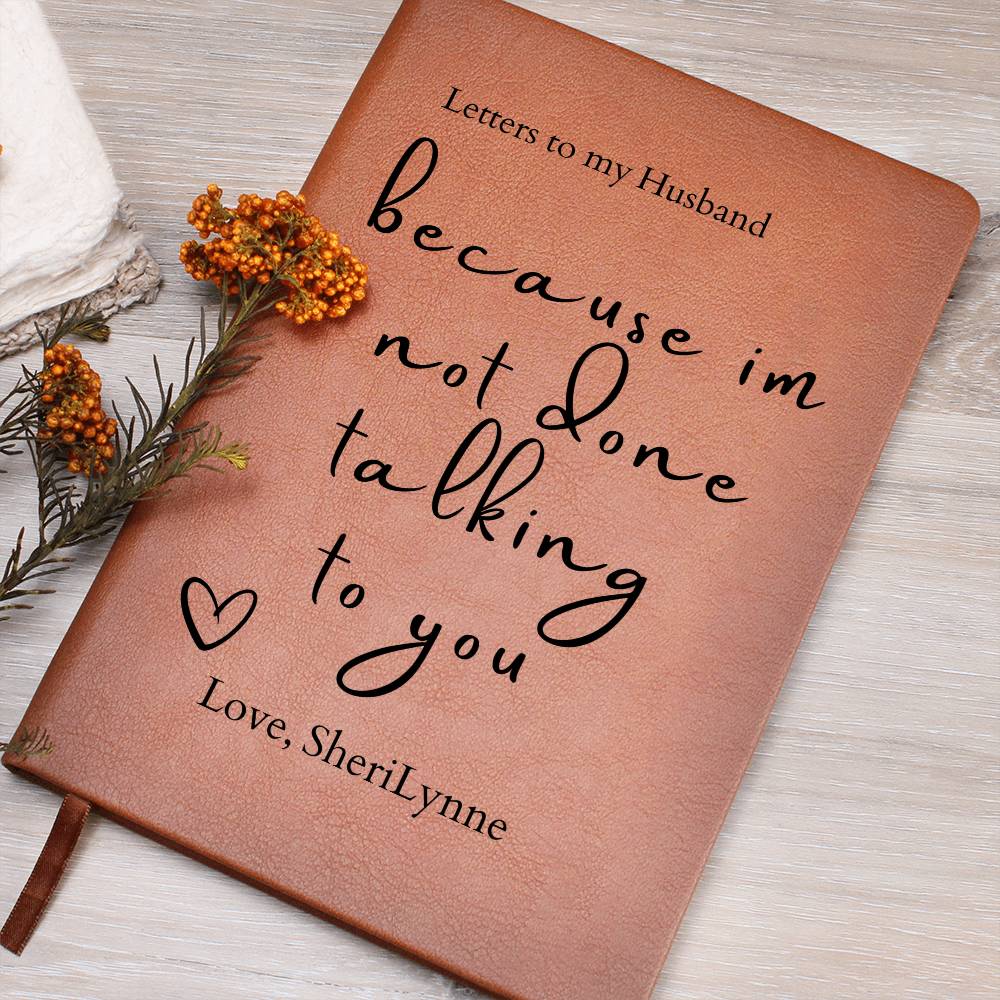 Letters to my Husband
because im
not done
talking
to you
Love, SheriLynne